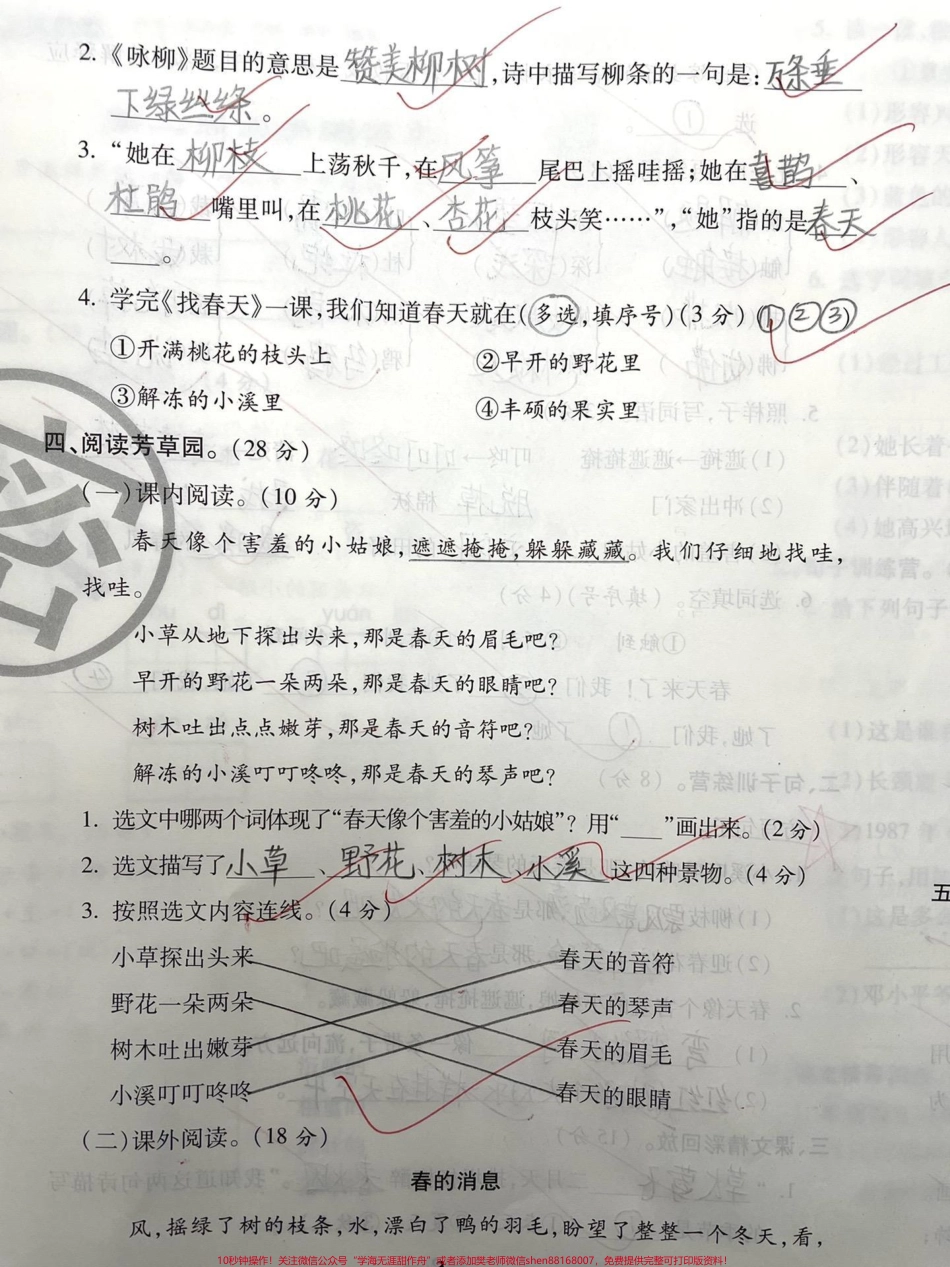 2.《咏柳》题目的意思是赞美柳树,诗中描写柳条的一句是:万条垂
下绿丝绦。
3.“她在 柳枝 上荡秋千,在风筝 尾巴上摇哇摇;她在喜鹊、
杜鹃 嘴里叫,在桃花、杏花 枝头笑……”,“她”指的是春天
。
4. 学完《找春天》一课,我们知道春天就在(多选,填序号)(3分)(①②③)
①开满桃花的枝头上 ②早开的野花里
③解冻的小溪里 ④丰硕的果实里
四、阅读芳草园。(28分)
(一)课内阅读。(10分)
春天像个害羞的小姑娘,遮遮掩掩,躲躲藏藏。我们仔细地找哇,
找哇。
小草从地下探出头来,那是春天的眉毛吧?
早开的野花一朵两朵,那是春天的眼睛吧?
树木吐出点点嫩芽,那是春天的音符吧?
解冻的小溪叮叮咚咚,那是春天的琴声吧?
1. 选文中哪两个词体现了“春天像个害羞的小姑娘”?用“___”画出来。(2分)
2. 选文描写了小草、野花、树木、小溪这四种景物。(4分)
3. 按照选文内容连线。(4分)
小草探出头来 春天的音符
野花一朵两朵 春天的琴声
树木吐出嫩芽 春天的眉毛
小溪叮叮咚咚 春天的眼睛
(二)课外阅读。(18分)
春的消息
风,摇绿了树的枝条,水,漂白了鸭的羽毛,盼望了整整一个冬天,看,
密
五
10秒钟操作!关注微信公众号“学海无涯甜作舟”或者添加樊老师微信shen88168007,免费提供完整可打印版资料!